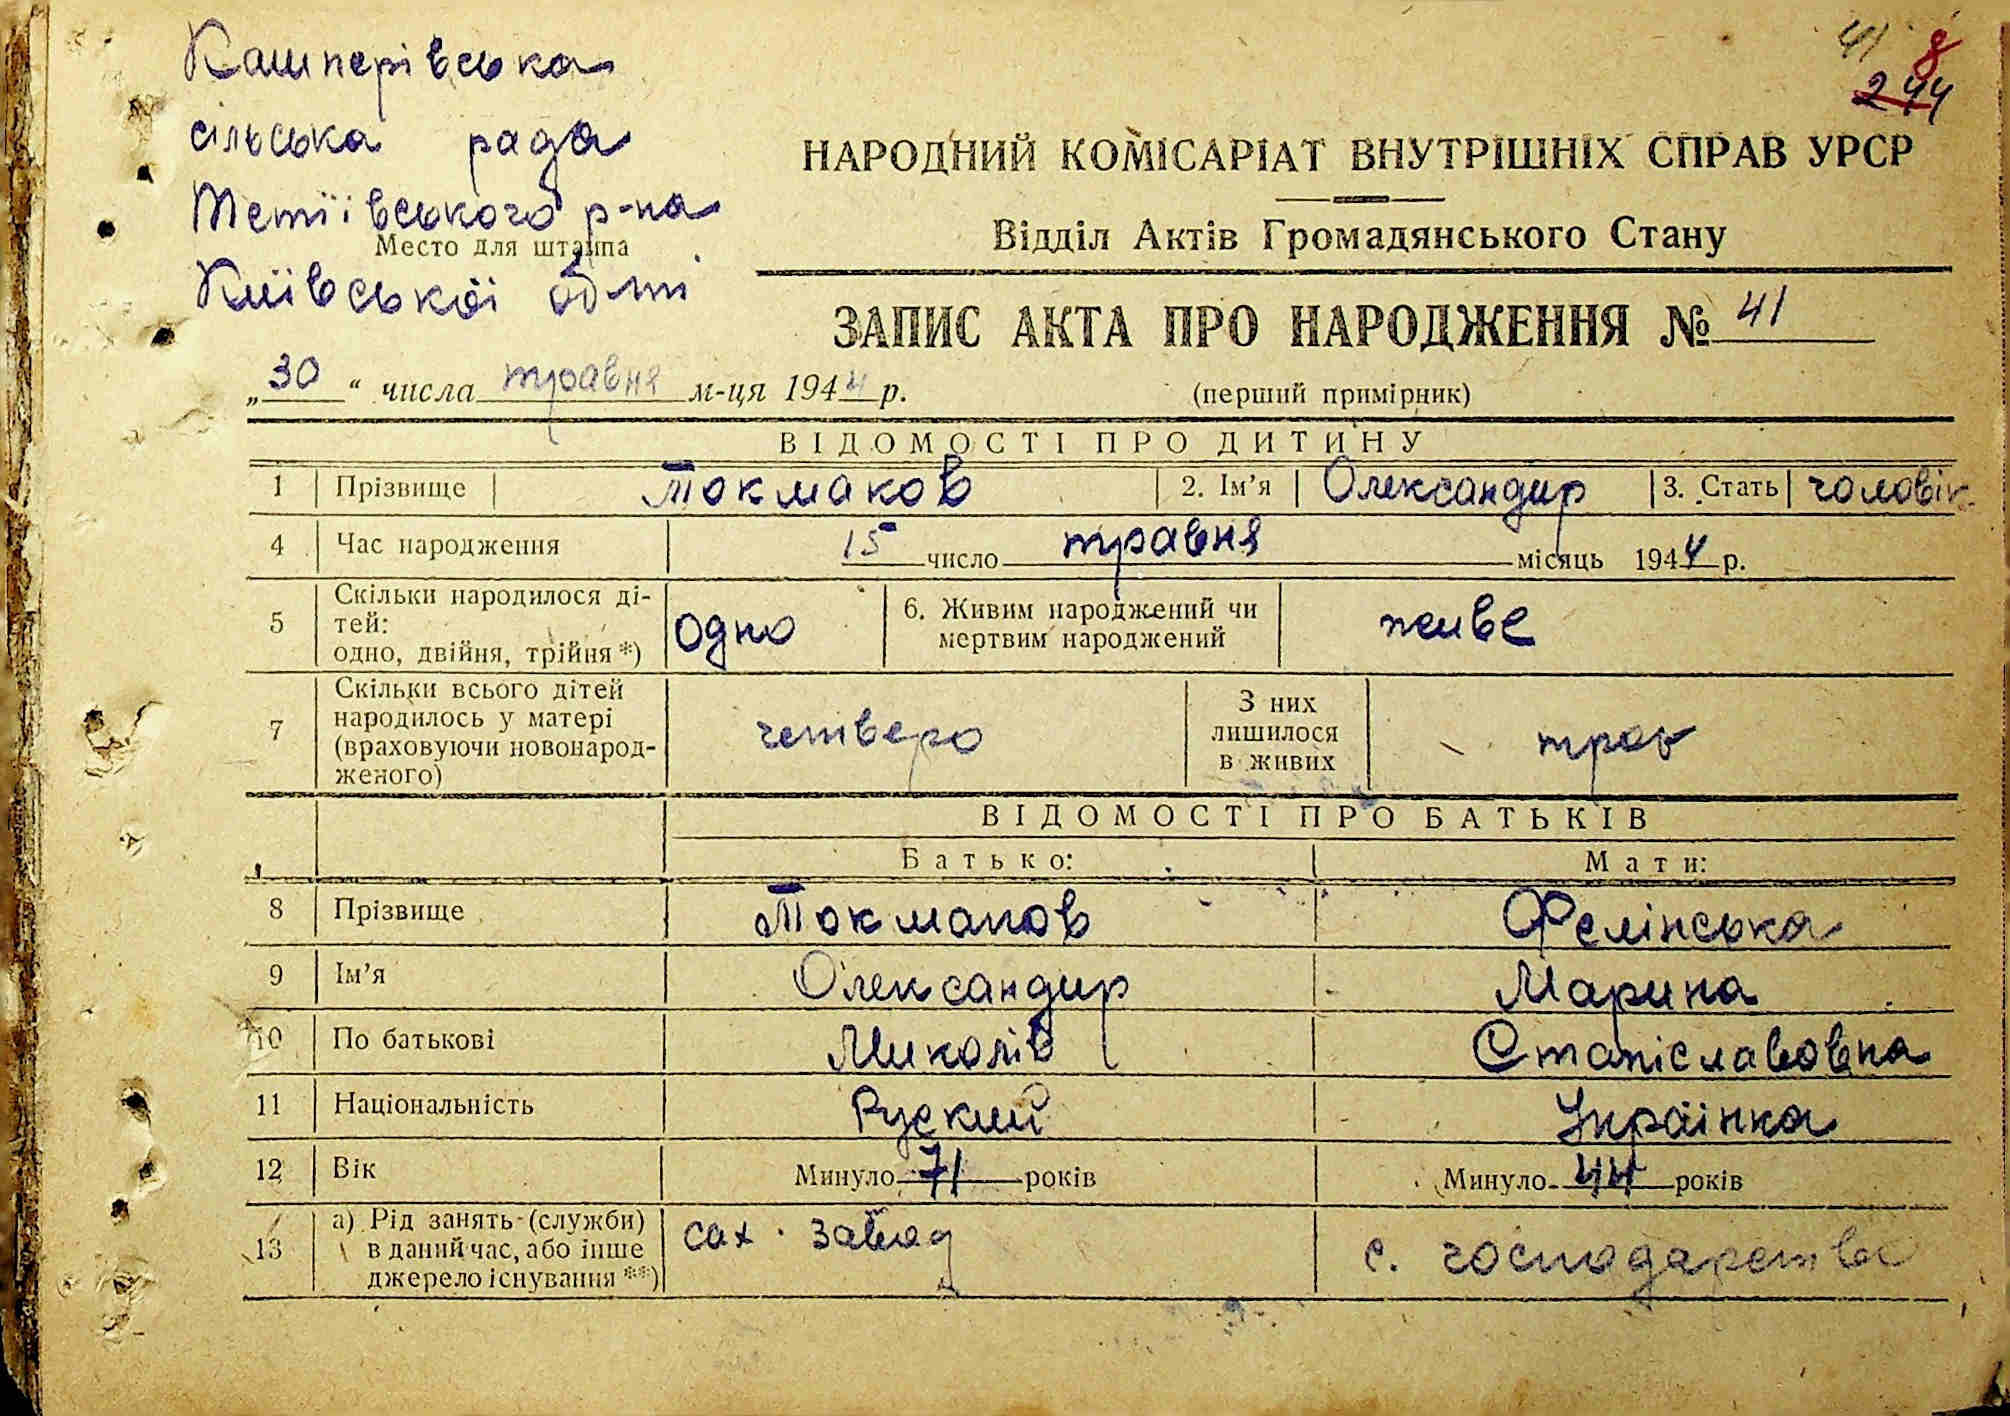 Кашперівська
сільська рада
Тетіївського р-на
Место для штампа
Київської обл-ті
41 8
244
НАРОДНИЙ КОМІСАРІАТ ВНУТРІШНІХ СПРАВ УРСР
Відділ Актів Громадянського Стану
ЗАПИС АКТА ПРО НАРОДЖЕННЯ № 41
„30“ числа травня м-ця 1944 р.
(перший примірник)
ВІДОМОСТІ ПРО ДИТИНУ
1 Прізвище Токмаков 2. Ім’я Олександир 3. Стать чоловік.
4 Час народження 15 число травня місяць 1944 р.
5 Скільки народилося ді-
тей:
одно, двійня, трійня*) одно 6. Живим народжений чи
мертвим народжений живе
7 Скільки всього дітей
народилось у матері
(враховуючи новонарод-
женого) четверо З них
лишилося
в живих троє
ВІДОМОСТІ ПРО БАТЬКІВ
Батько: Мати:
8 Прізвище Токмаков Фелінська
9 Ім’я Олександир Марина
10 По батькові Миколів Станіславовна
11 Національність Руский Українка
12 Вік Минуло 71 років Минуло 44 років
13 а) Рід занять (служби)
в даний час, або інше
джерело існування**) сах. завод с. господарства